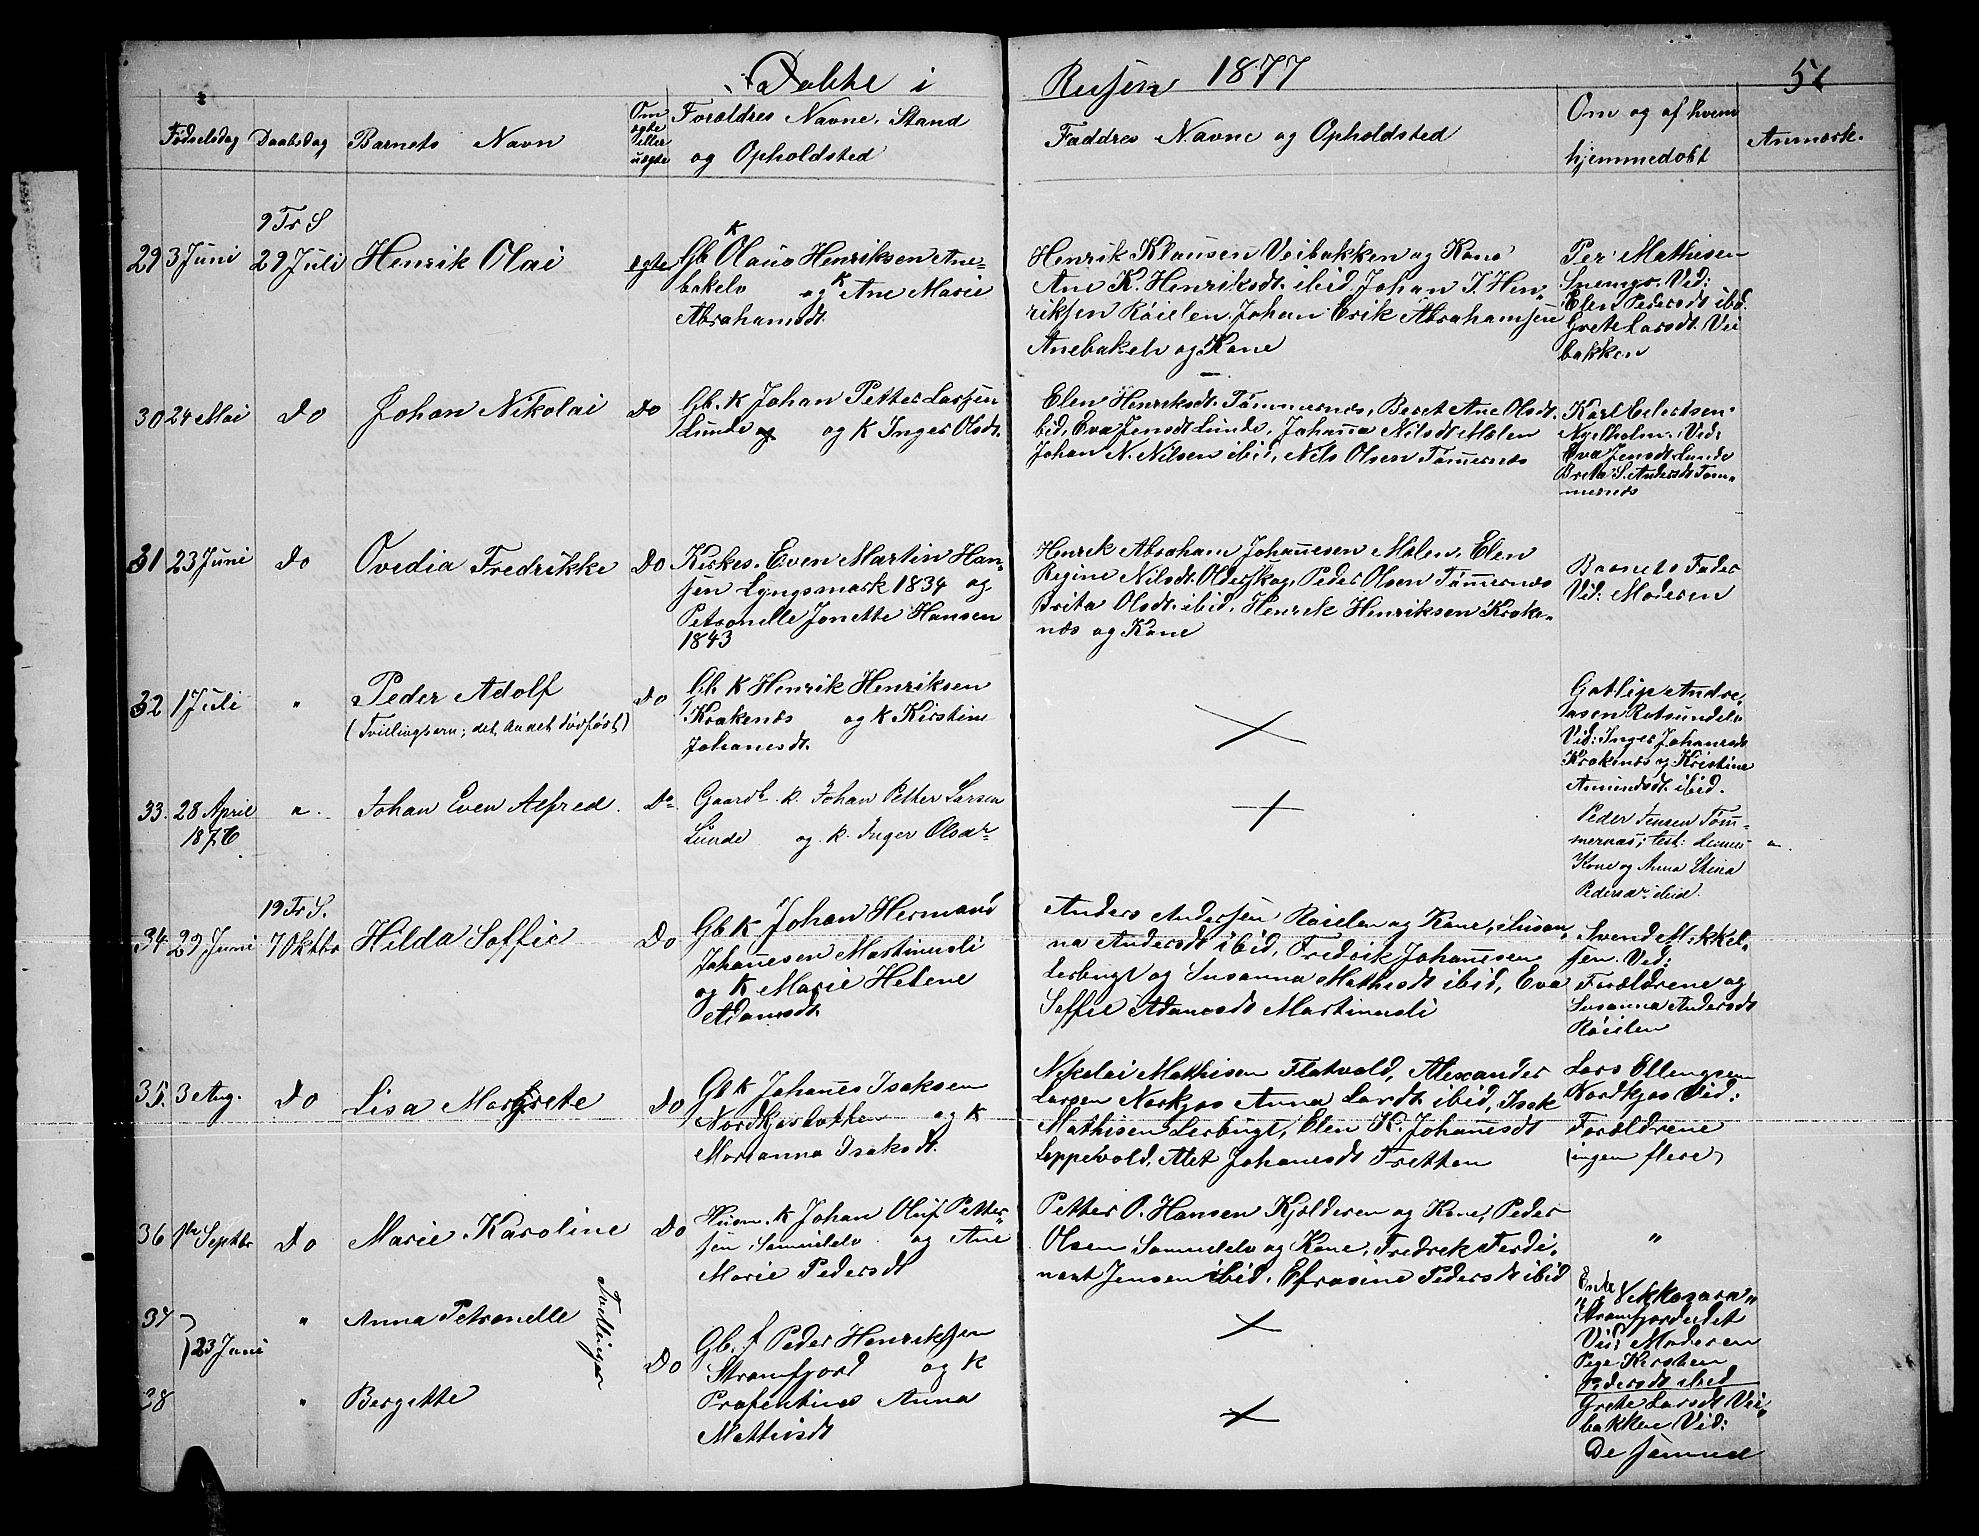 Døbte i Reisen 1877 51
Fødselsdag Daabsdag Barnets Navn Om ægte eller uægte Forældres Navne, Stand og Opholdsted Faddres Navne og Opholdsted Om og af hvem hjemmedøbt Anmærk.
9 Tr S
29 3 Juni 29 Juli Henrik Olai egte
Gb. K Olaus Henriksen Ane-
bakelv og K Ane Marie
Abrahamsdt.
Henrik Klausen Veibakken og Kone
Ane K. Henriksdt. ibid, Johan I. Hen-
riksen Röielen, Johan Erik Abrahamsen
Anebakelv og Kone
Per Mathisen
Snemyr. Vid:
Elen Pedersdt ibd.
Grete Larsdt. Vei
bakken
30 24 Mai Do Johan Nikolai Do
Gb. K Johan Petter Larsen
Lunde og og K Inger Olsdt.
Elen Henriksdt. Tömmernæs, Beret Ane Olsdt.
ibid, Eva Jensdt Lunde, Johanna Nilsdt Mælen
Johan N. Nilsen ibid, Nils Olsen Tömernæs
Karl Eilertsen
Nyelholm. Vid:
Eva Jensdt Lunde
Breta S. Andersdt Töm-
mernæs
31 23 Juni Do Ovedia Fredrikke Do
Kirkes. Even Martin Han-
sen Lyngsmark 1834 og
Petronelle Jonette Hansen
1843
Henrik Abraham Johannesen Mælen, Elen
Regine Nilsdt. Olderskog, Peder Olsen Tömernæs
Brita Olsdt. ibid, Henrik Henriksen Kroke-
næs og Kone
Barnets Fader
Vid: Moderen
32 1 Juli " Peder Adolf Do
(Tvillingbarn; det andet dødfødt)
Gb. K Henrik Henriksen
Krokenæs og K Kirstine
Johanesdt.
Gotlip Andre-
asen Rotsundelv
Vid: Inger Johanesdt
Krokenæs og Kristine
Amundsdt. ibid.
33. 28 April " Johan Even Alfred. Do
1876
Gaardb. K. Johan Petter Larsen
Lunde og K. Inger Olsdr
Peder Jensen Töm-
mernæs; test: dennes
Kone og Anna Stina
Pedersdr ibid.
19 Tr S.
34 29 Juni 7 Oktbr Hilda Soffie Do
Gb K Johan Hermand
Johanesen Martinusli
og K Marie Helene
Adamsdt.
Anders Andersen Röielen og Kone, Susan-
na Andersdt ibid, Fredrik Johanesen
Lerbugt og Susanna Mathisdt ibid, Eva
Soffie Adamsdt Martinusli
Svend Mikkel-
sen. Vid:
Forældrene og
Susanna Andersdt
Röielen
35. 3 Aug. Do Lisa Margrete Do
Gb K Johanes Isaksen
Nordkjosbotten og K
Marianna Isaksdt.
Nikolai Mathisen Flatvold, Alexander
Larsen Norkjos Anna Larsdt ibid, Isak
Mathisen Lerbugt, Elen K. Johanesdt
Leppevold, Alet Johanesdt Tretten
Lars Ellengsen
Nordkjos Vid:
Forældrene
(ingen flere)
36 1ste Septbr Do Marie Karoline Do
Husm. K Johan Oluf Petter-
sen Samuelelv og Ane
Marie Pedersdt
Petter O. Hansen Kjelderen og Kone, Peder
Olsen Samuelelv og Kone, Fredrek Ferdi-
nant Jensen ibid, Efrosine Pedersdt ibid
"
37 } 23 Juni " Anna Petronelle Tvillinger Do
38 " Bergette
Gb. f Peder Henriksen
Strømfjord og K
Anna
Mattisdt
Vid: Moderen
Kirsten
Pedersdt ibid
Grete Larsdt Vei-
bakken Vid:
De samme